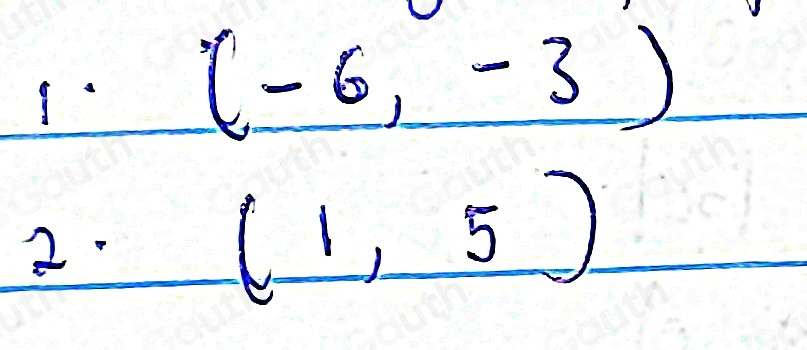 1. (-6, -3)
2. (1, 5)